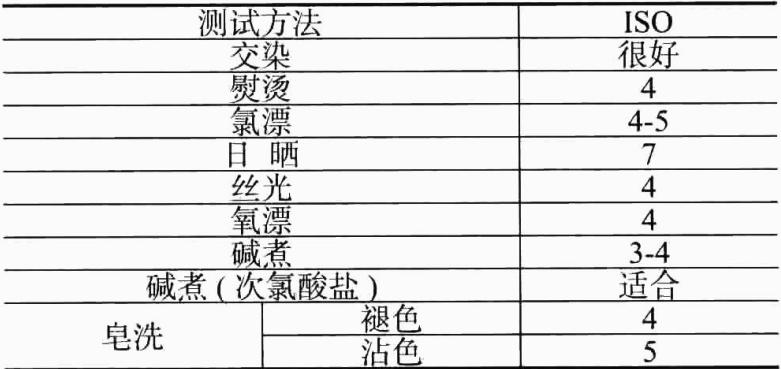 测试方法 ISO
交染 很好
熨烫 4
氯漂 4-5
日 晒 7
丝光 4
氧漂 4
碱煮 3-4
碱煮(次氯酸盐) 适合
皂洗 褪色 4
沾色 5